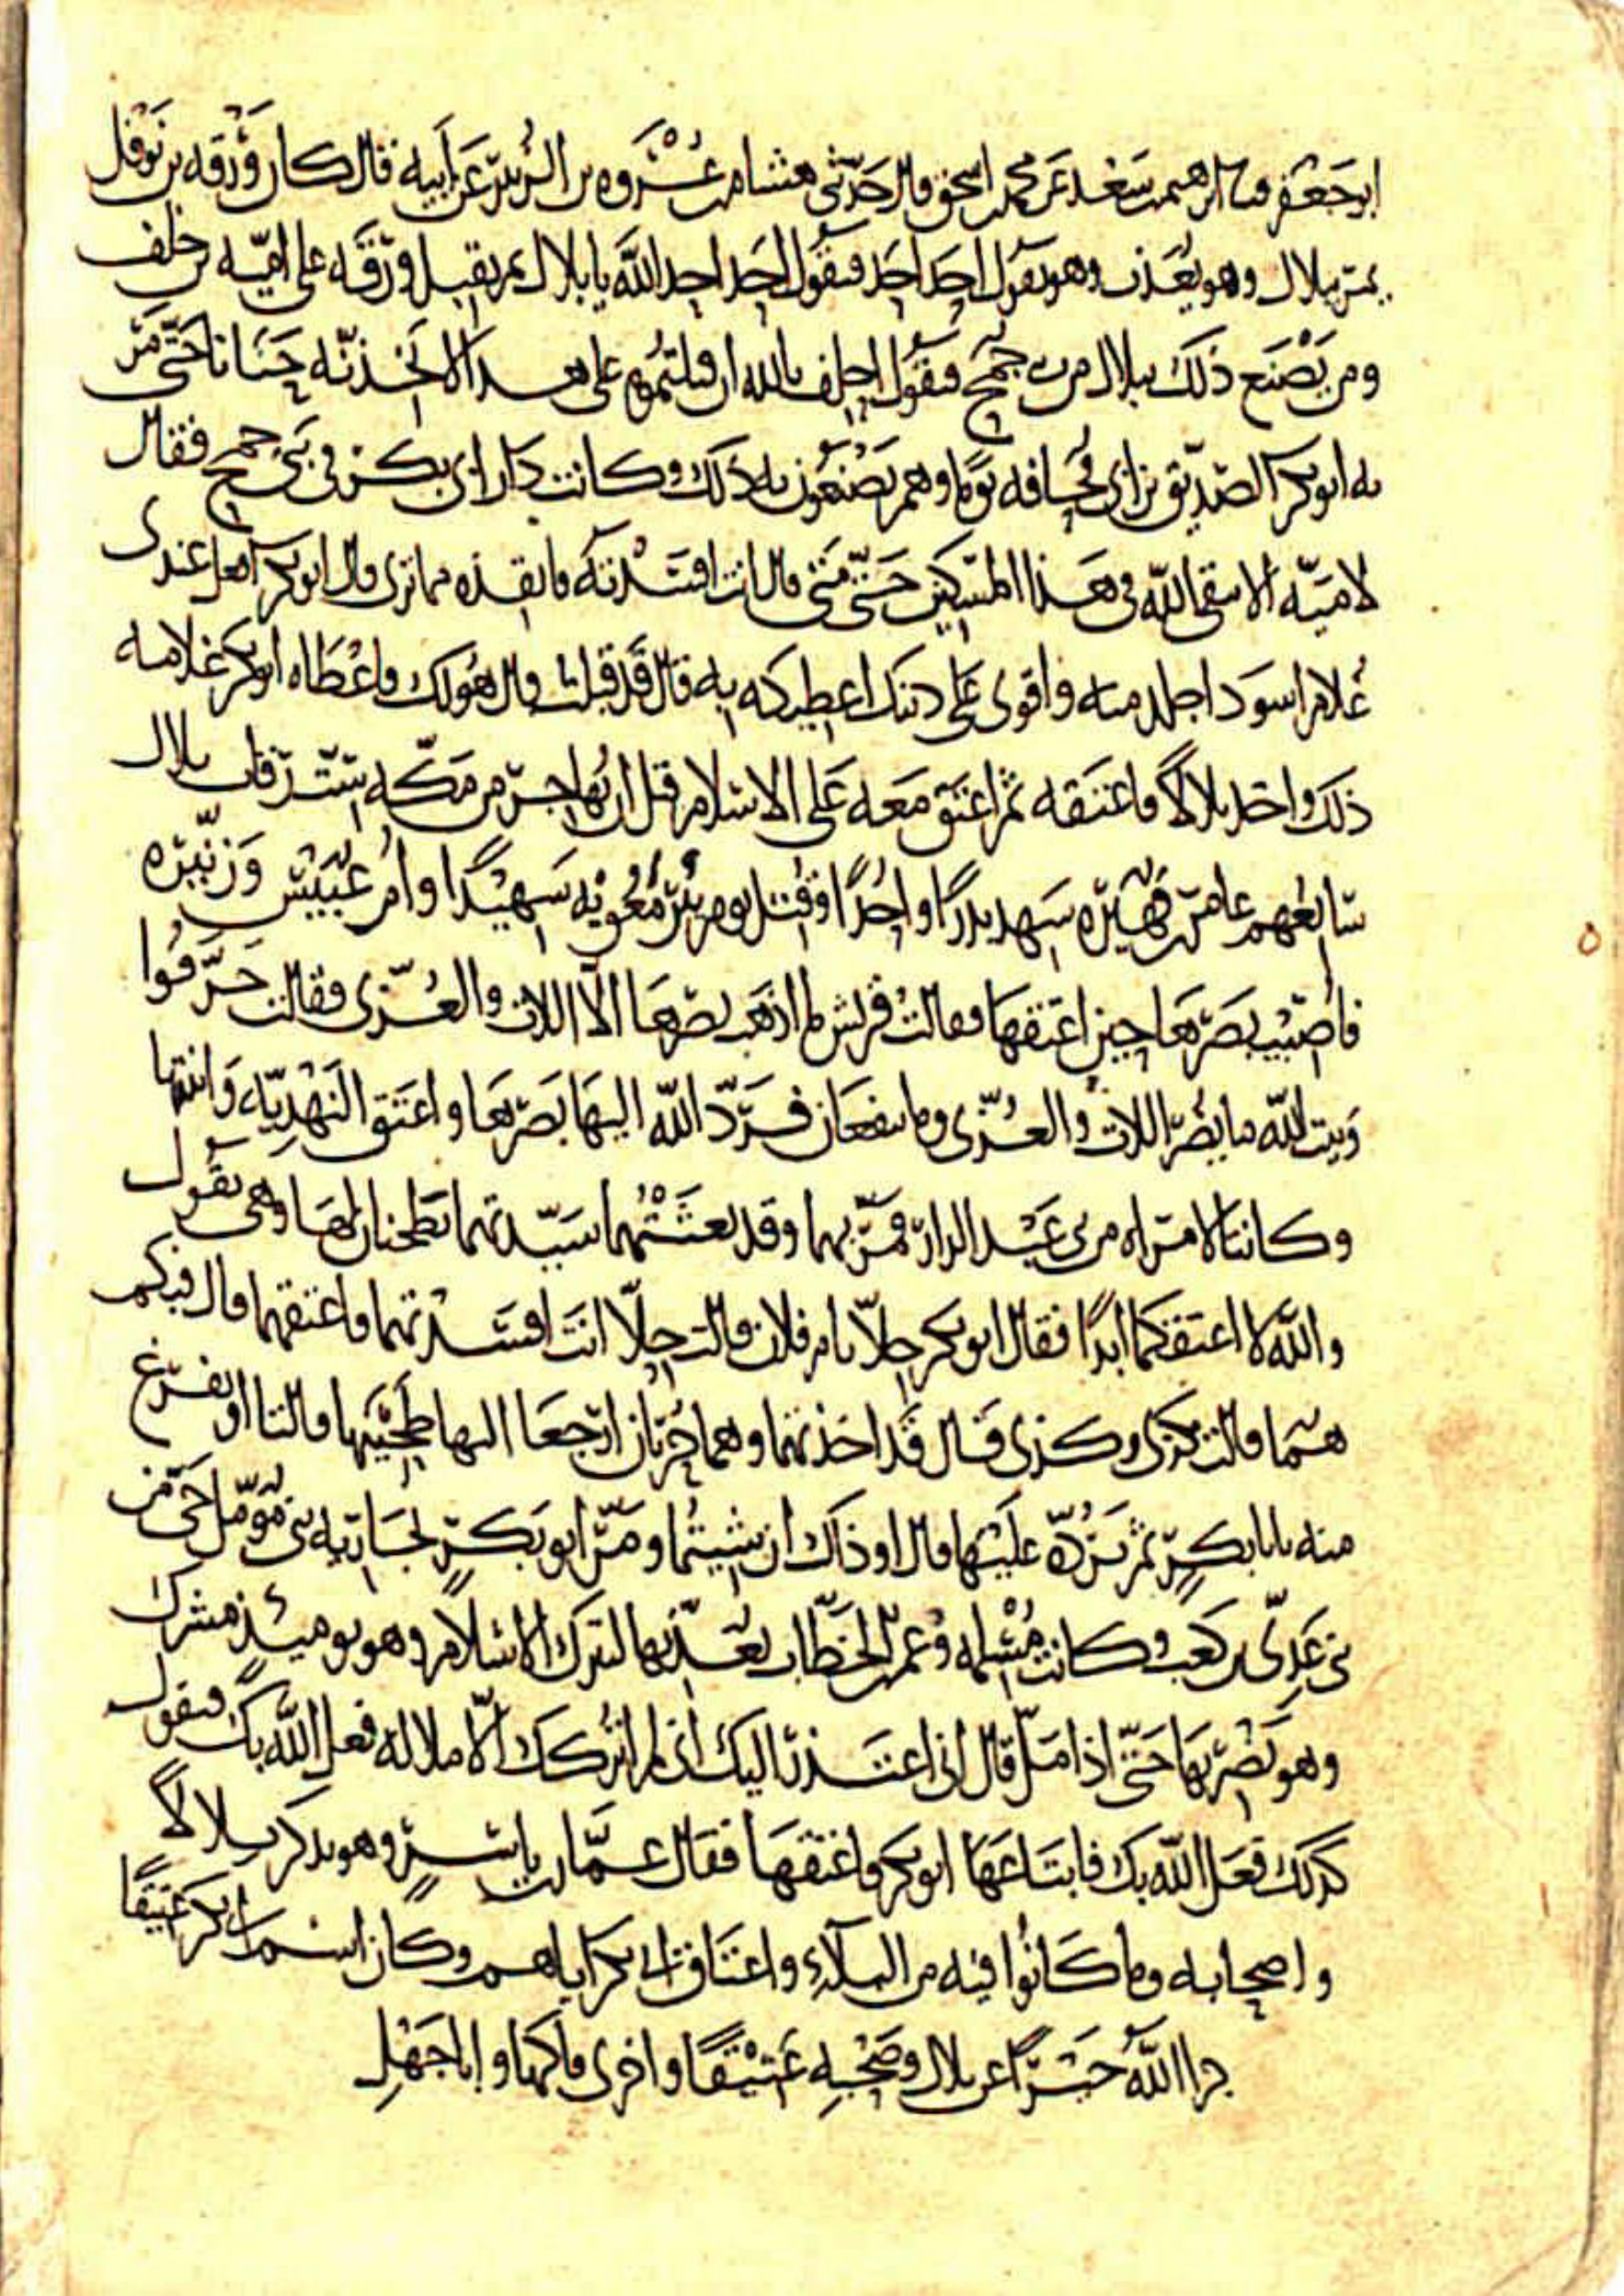 ابو جعفر ما ابرهيم بن سعد عن محمد بن اسحق قال حدثني هشام بن عروه بن الزبير عن ابيه قال كان ورقه بن نوفل
يمر ببلال وهو يعذب وهو يقول احد احد فيقول احد احد الله يا بلال ثم يقبل ورقه على اميه بن خلف
ومن يصنع ذلك ببلال من بني جمح فيقول احلف بالله ان قتلتموه على هذا لاتخذنه حنانا حتى مر
به ابو بكر الصديق بن ابي قحافه يوما وهم يصنعون به ذلك وكانت دار ابي بكر في بني جمح فقال
لاميه الا تتقي الله في هذا المسكين حتى متى قال انت افسدته فانقذه مما ترى قال ابو بكر افعل عندي
غلام اسود اجلد منه واقوى على دينك اعطيكه به قال قد قبلت قال هو لك فاعطاه ابو بكر غلامه
ذلك واخذ بلالا فاعتقه ثم اعتق معه على الاسلام قبل ان يهاجر من مكه ست رقاب بلال
سابعهم عامر بن فهيره شهد بدرا واحدا وقتل يوم بئر معونه شهيدا وام عبيس وزنيره
فاصيب بصرها حين اعتقها فقالت قريش ما اذهب بصرها الا اللات والعزى فقالت حرقوا
وبيت الله ما يضر اللات والعزى وما ينفعان فرد الله اليها بصرها واعتق النهديه وابنتها
وكانتا لامراه من بني عبد الدار فمر بهما وقد بعثتهما سيدتهما تطحنان لها وهي تقول
والله لا اعتقكما ابدا فقال ابو بكر حلا يام فلان قالت حلا انت افسدتهما فاعتقهما قال فبكم
هما قالت بكذى وكذى قال قد اخذتهما وهما حرتان ارجعا اليها طحينها قالتا او نفرغ
منه يابا بكر ثم نرده عليها قال او ذاك ان شيتما ومر ابو بكر بجاريه بني مؤمل حي من
بني عدي بن كعب وكانت مسلمه وعمر بن الخطاب يعذبها لتترك الاسلام وهو يوميئذ مشرك
وهو يضربها حتى اذا مل قال اني اعتذر اليك اني لم اتركك الا ملالة فعل الله بك فيقول
كذلك فعل الله بك فابتاعها ابو بكر فاعتقها فقال عمار بن ياسر وهو يذكر بلالا
واصحابه وما كانوا فيه من البلاء واعتاق ابي بكر اياهم وكان اسم ابي بكر عتيقا
جزا الله خيرا عن بلال وصحبه عتيقا واخزى فاكها وابا جهل